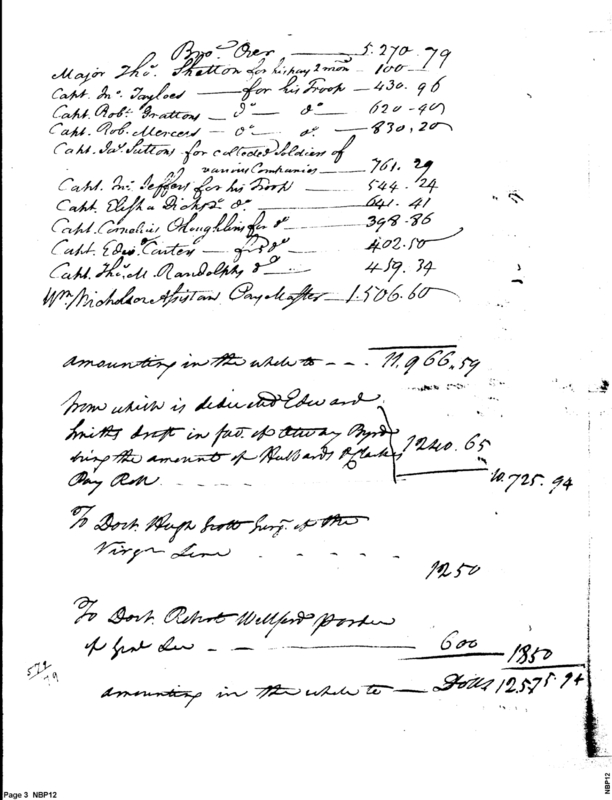 Bro.t Over — 5.270.79
Major Tho.s Shelton for his pay 2 mon — 100 —
Capt. Jn.o Tayloes — for his Troop — 430.96
Capt. Rob.t Grattons — d.o — d.o — 620.40
Capt. Rob. Mercers — d.o — d.o — 830,20
Capt. Ja.s Suttons for collected Soldiers of
various Companies — 761.29
Capt. Jn.o Jeffers for his Troop — 544.24
Capt. Elisha Dicks d.o — 641.41
Capt. Cornelius OLoughlins for d.o — 398.86
Capt. Edw.d Carters — for d.o — 402.50
Capt. Tho.s M. Randolphs d.o — 459.34
Wm. Nicholson Assistan Pay Master — 1.506.60
amounting in the whole to - - - 11,966.59
from which is deducted Edward
Smiths draft in fav. of Otway Byrd
being the amount of Hubbards & Clarkes 1240.65
Pay Roll - - - - - 10.725.94
To Doct. Hugh Scott Surg. of the
Virg.a Line - - - - -
1250
To Doct. Robert Wellford
of Genl Lee - - — 600 1850
579
79
amounting in the whole to — Dolls 12575.94
Page 3 NBP12
NBP12